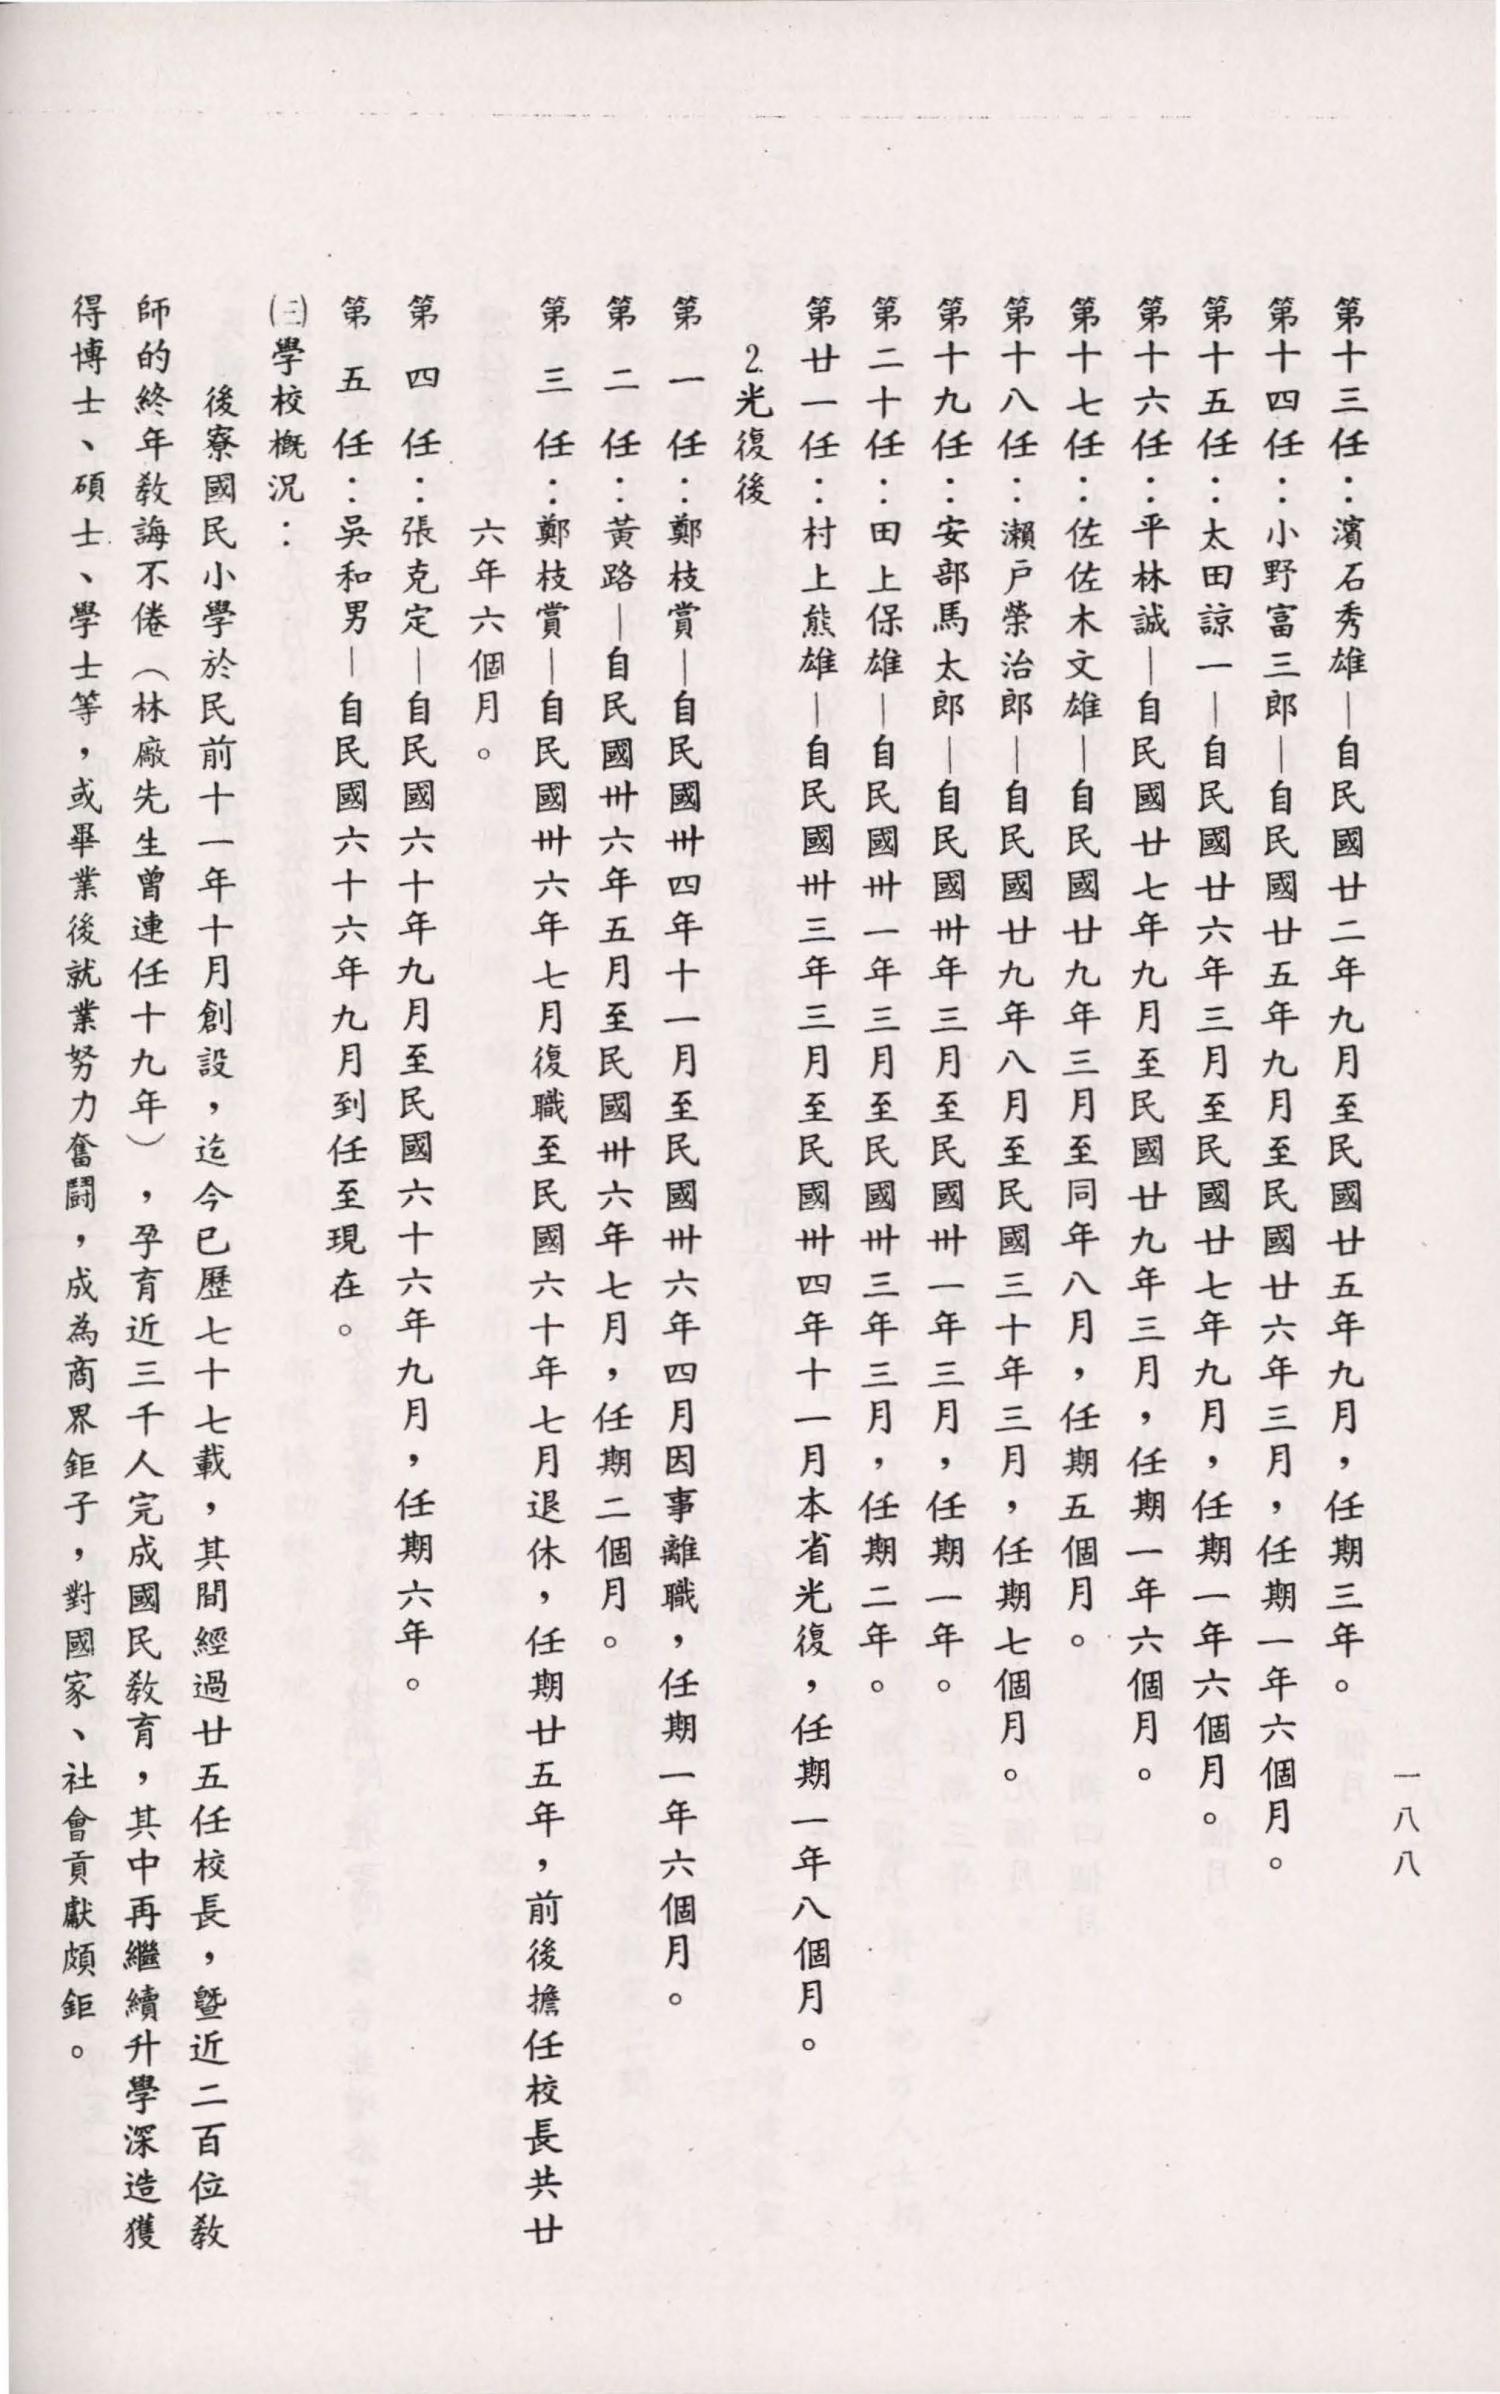 一八八
第十三任：濱石秀雄—自民國廿二年九月至民國廿五年九月，任期三年。
第十四任：小野富三郎—自民國廿五年九月至民國廿六年三月，任期一年六個月。
第十五任：太田諒一—自民國廿六年三月至民國廿七年九月，任期一年六個月。
第十六任：平林誠—自民國廿七年九月至民國廿九年三月，任期一年六個月。
第十七任：佐佐木文雄—自民國廿九年三月至同年八月，任期五個月。
第十八任：瀨戶榮治郎—自民國廿九年八月至民國三十年三月，任期七個月。
第十九任：安部馬太郎—自民國卅年三月至民國卅一年三月，任期一年。
第二十任：田上保雄—自民國卅一年三月至民國卅三年三月，任期二年。
第廿一任：村上熊雄—自民國卅三年三月至民國卅四年十一月本省光復，任期一年八個月。
2.光復後
第一任：鄭枝賞—自民國卅四年十一月至民國卅六年四月因事離職，任期一年六個月。
第二任：黃路—自民國卅六年五月至民國卅六年七月，任期二個月。
第三任：鄭枝賞—自民國卅六年七月復職至民國六十年七月退休，任期廿五年，前後擔任校長共廿
六年六個月。
第四任：張克定—自民國六十年九月至民國六十六年九月，任期六年。
第五任：吳和男—自民國六十六年九月到任至現在。
㈢學校概況：
後寮國民小學於民前十一年十月創設，迄今已歷七十七載，其間經過廿五任校長，暨近二百位教
師的終年教誨不倦（林廠先生曾連任十九年），孕育近三千人完成國民教育，其中再繼續升學深造獲
得博士、碩士、學士等，或畢業後就業努力奮鬪，成為商界鉅子，對國家、社會貢獻頗鉅。